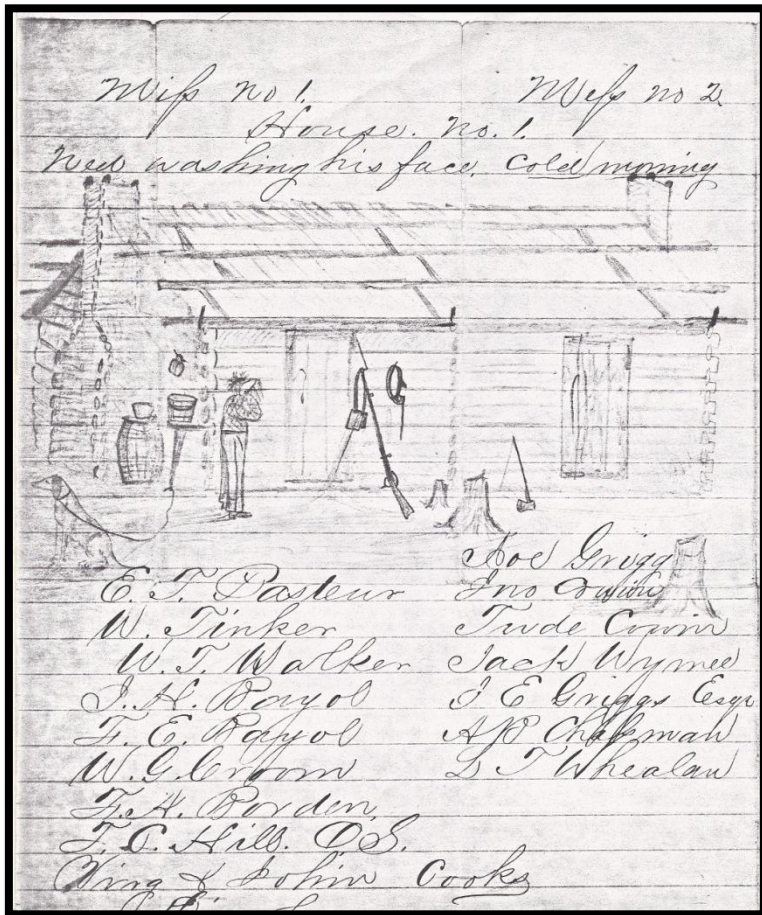 Mess no 1. Mess no 2.
House. no. 1.
washing his face. Cold morning
E. T. Pasteur
W. Tinker
W. T. Walker
J. H. Bayol
F. E. Bayol
W. G. Croom
F. H. Borden,
T. C. Hill. O S.
King & John Cooks
Joe Grigg
Jno Cowin
Tude Cowin
Jack Wymee
J E Griggs Esqr
A P Chapman
L T Whealan